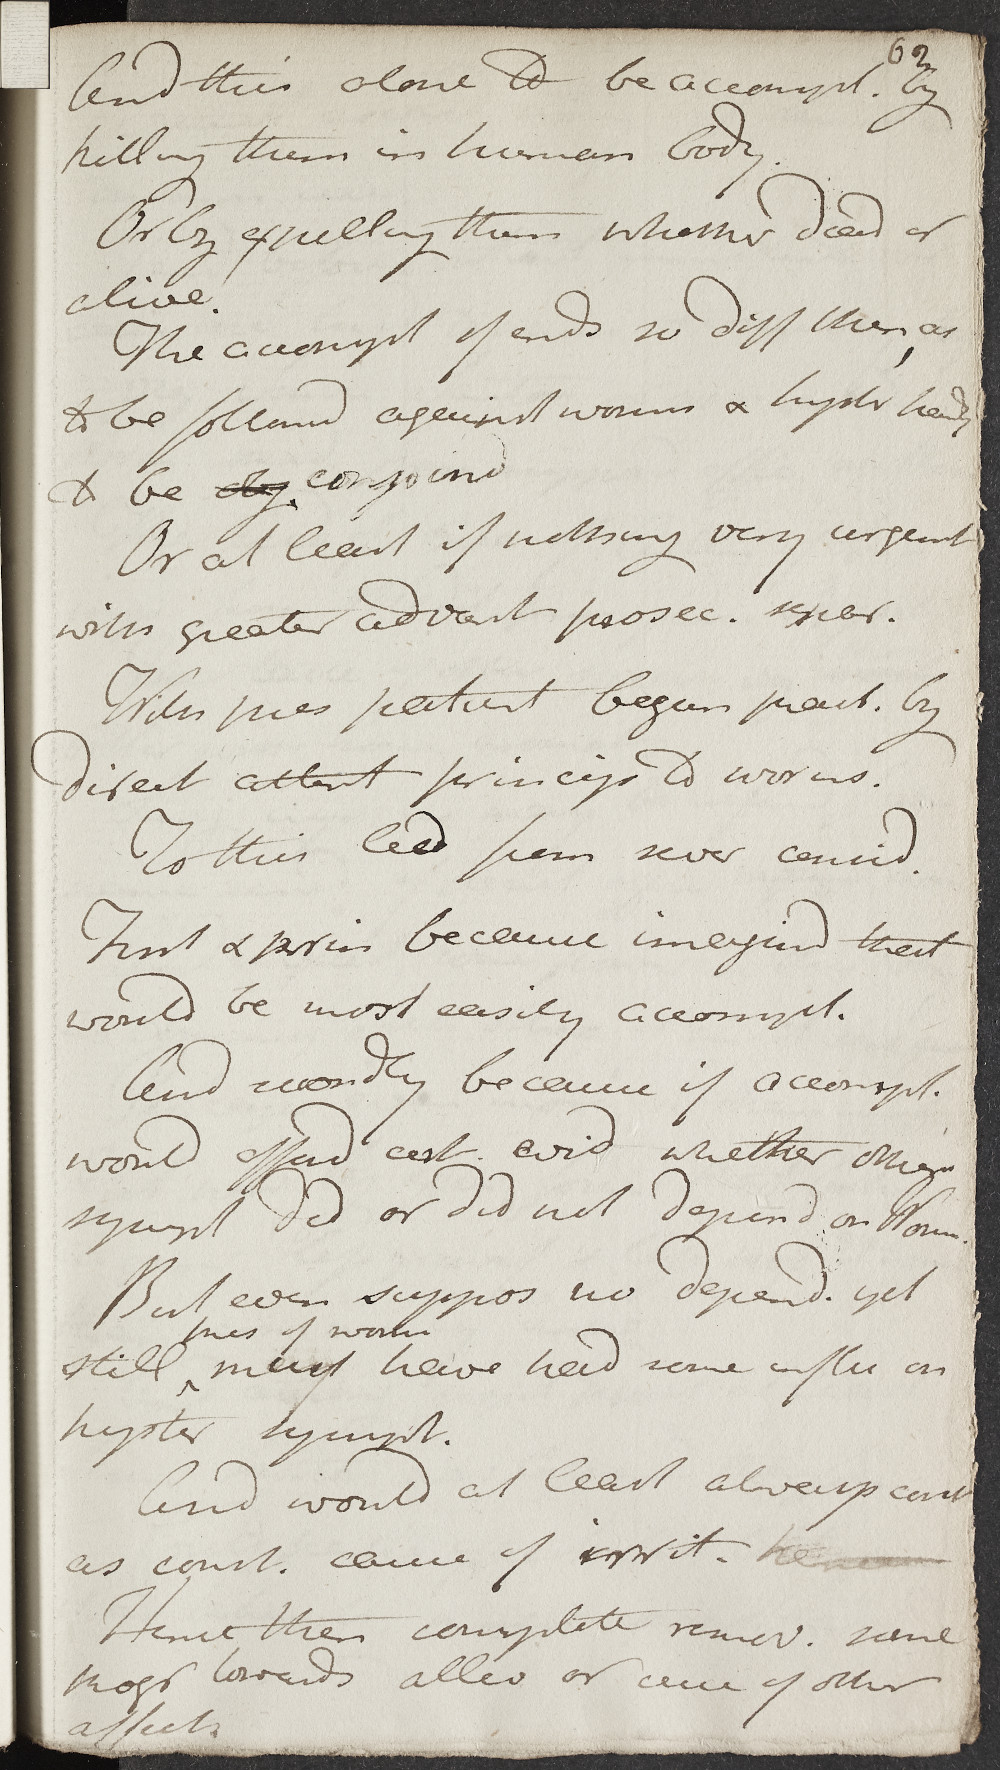 62
And this alone to be accompl. by
killing them in human body.
Or by expelling them whether dead or
alive.
The accompl of ends so diff then, as
to be followd against worms & hyster hardly
to be conjoind
Or at least if nothing very urgent
with greater advant prosec. separ.
With pres patient began pract. by
direct attent princip to worms.
To this led from sever consid.
First & prin because imagind that
would be most easily accompl.
And secondly because if accompl.
would afford cert. evid whether other
sympt did or did not depend on Worm.
But even suppos no depend. yet
pres of worm
still may have had some influ on
hyster sympt.
And would at least always
as const. cause of irrit.
Hence then complete remov. some
progr towards allev or cure of other
affect.